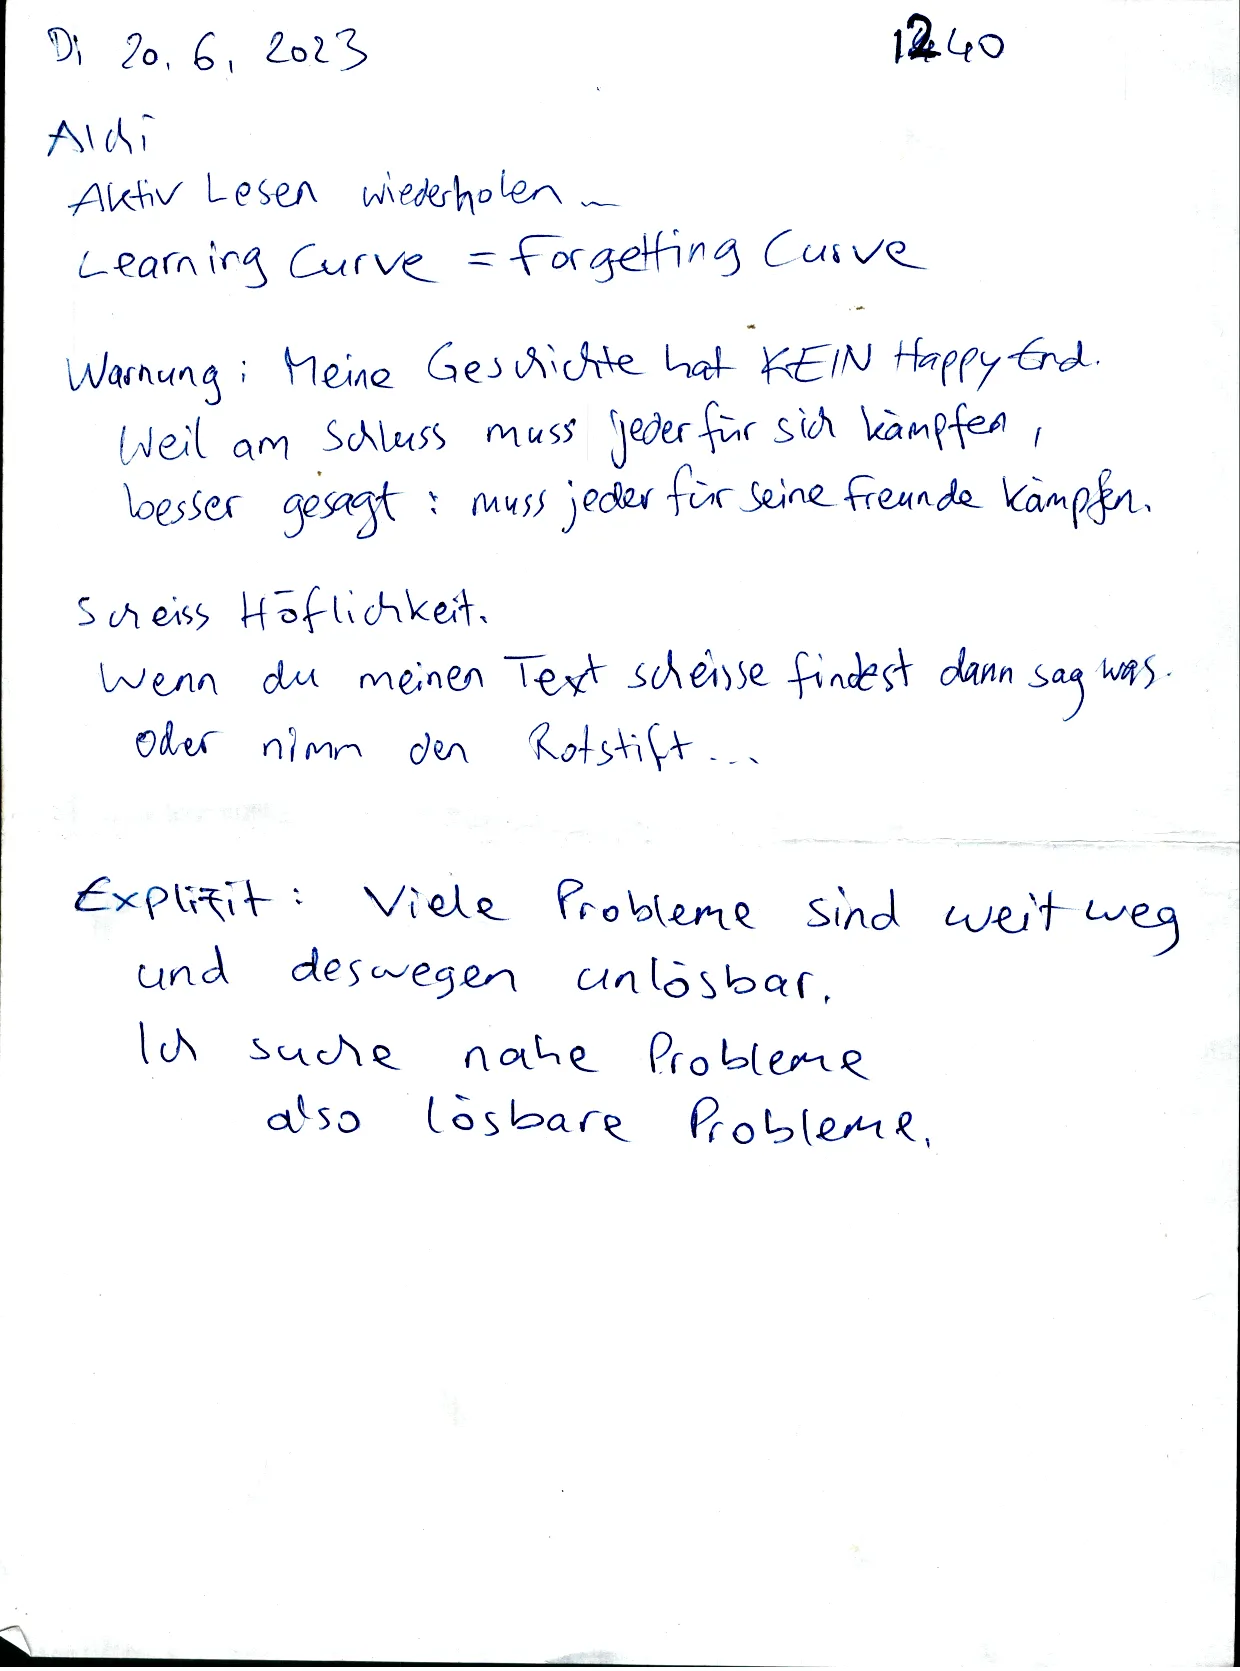 Di 20.6.2023 1240
Alchi
Aktiv Lesen wiederholen
Learning Curve = Forgetting Curve
Warnung: Meine Geschichte hat KEIN Happy End.
Weil am Schluss muss jeder für sich kämpfen,
besser gesagt: muss jeder für seine Freunde kämpfen.
Scheiss Höflichkeit.
Wenn du meinen Text scheisse findest dann sag was.
oder nimm den Rotstift...
Explizit: Viele Probleme sind weit weg
und deswegen unlösbar.
Ich suche nahe Probleme
also lösbare Probleme.